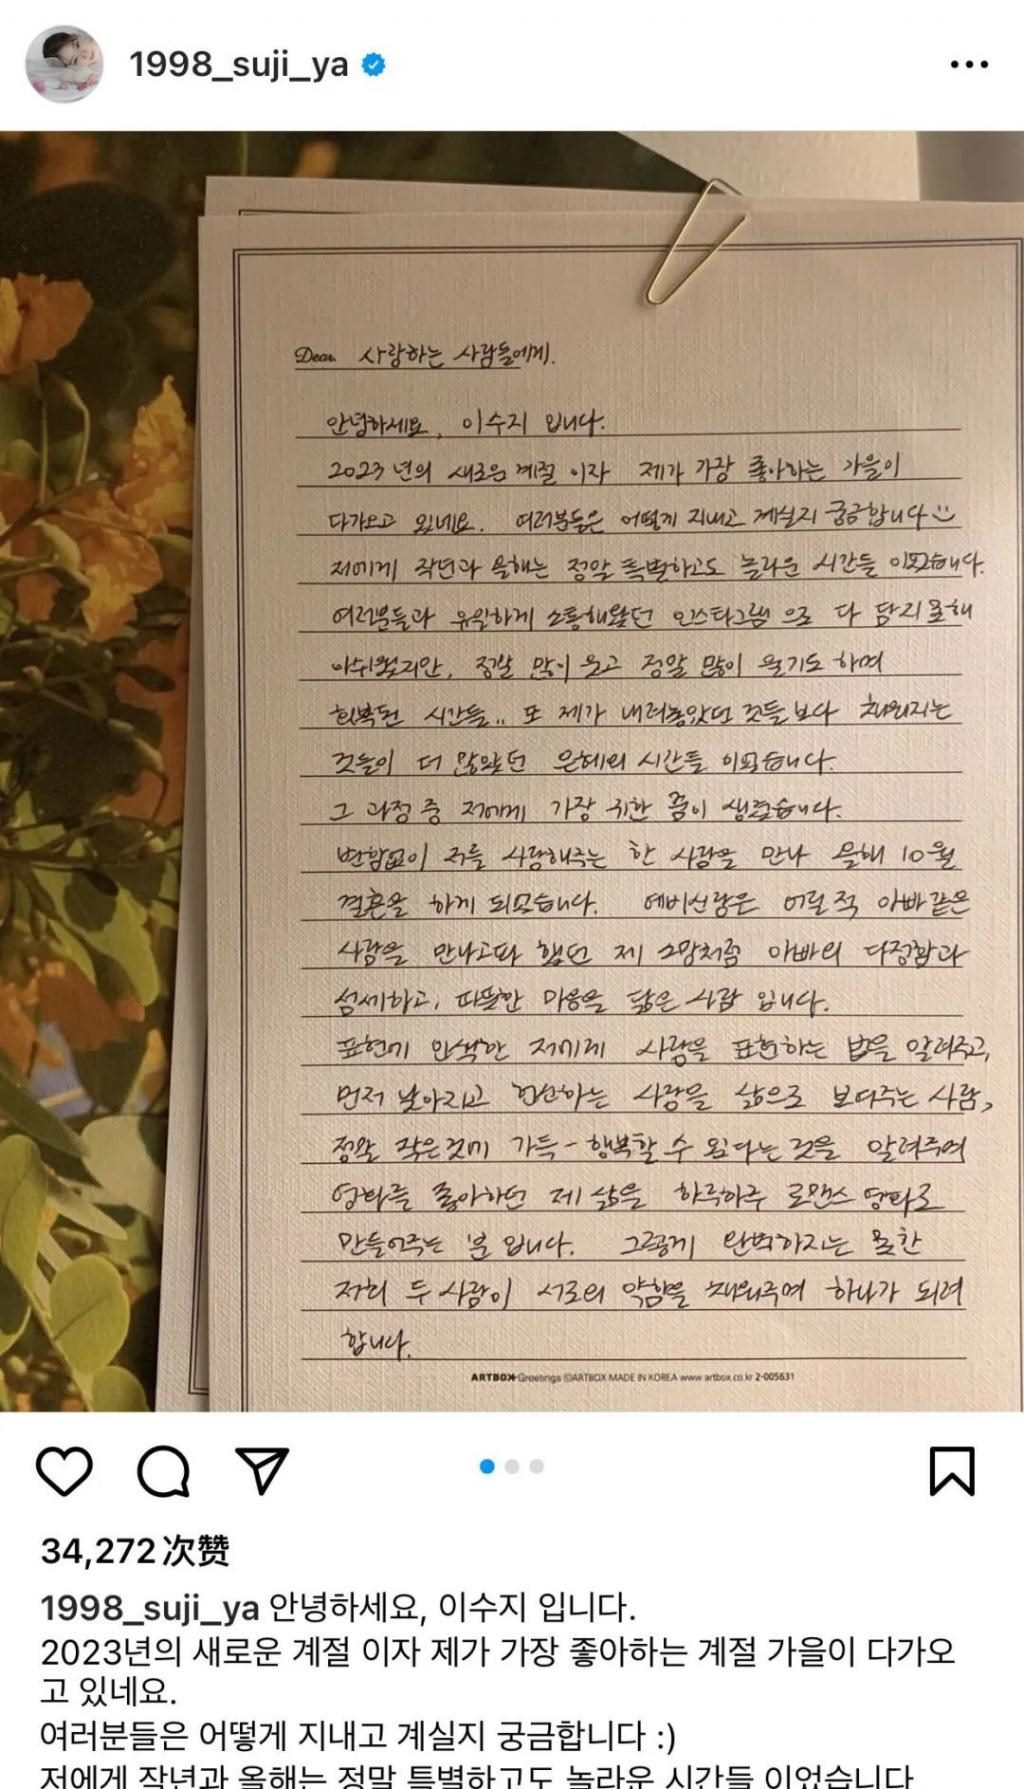 1998_suji_ya
Dear. 사랑하는 사람들에게.
안녕하세요, 이수지 입니다.
2023년의 새로운 계절 이자 제가 가장 좋아하는 가을이
다가오고 있네요. 여러분들은 어떻게 지내고 계실지 궁금합니다
저에게 작년과 올해는 정말 특별하고도 놀라운 시간들 이었습니다.
여러분들과 유일하게 소통해왔던 인스타그램 으로 다 담지 못해
아쉬웠지만, 정말 많이 웃고 정말 많이 울기도 하며
회복된 시간들.. 또 제가 내려놓았던 것들보다 채워지는
것들이 더 많았던 은혜의 시간들 이었습니다.
그 과정 중 저에게 가장 귀한 꿈이 생겼습니다.
변함없이 저를 사랑해주는 한 사람을 만나 올해 10월
결혼을 하게 되었습니다. 예비신랑은 어릴 적 아빠같은
사람을 만나고파 했던 제 소망처럼 아빠의 다정함과
섬세하고, 따뜻한 마음을 닮은 사람 입니다.
표현에 인색한 저에게 사랑을 표현하는 법을 알려주고,
먼저 낮아지고 헌신하는 사랑을 삶으로 보여주는 사람,
정말 작은것에 가득-행복할 수 있다는 것을 알려주며
영화를 좋아하던 제 삶을 하루하루 로맨스 영화로
만들어주는 분 입니다. 그렇게 완벽하지는 못한
저희 두 사람이 서로의 약함을 채워주며 하나가 되려
합니다.
ARTBOX Greetings ©ARTBOX MADE IN KOREA www.artbox.co.kr 2-005631
34,272次赞
1998_suji_ya 안녕하세요, 이수지 입니다.
2023년의 새로운 계절 이자 제가 가장 좋아하는 계절 가을이 다가오
고 있네요.
여러분들은 어떻게 지내고 계실지 궁금합니다 :)
저에게 작년과 올해는 정말 특별하고도 놀라운 시간들 이었습니다